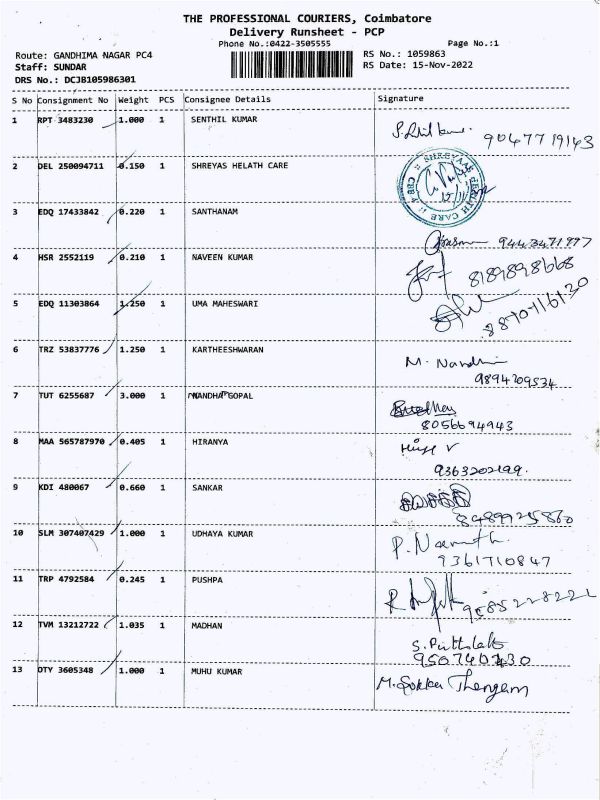 THE PROFESSIONAL COURIERS, Coimbatore
Delivery Runsheet - PCP
Phone No.:0422-3505555 Page No.:1
Route: GANDHIMA NAGAR PC4 RS No.: 1059863
Staff: SUNDAR RS Date: 15-Nov-2022
DRS No.: DCJB105986301
S No Consignment No Weight PCS Consignee Details Signature
1 RPT 3483230 1.000 1 SENTHIL KUMAR
9047719143
2 DEL 250094711 0.150 1 SHREYAS HELATH CARE
SHREYAAS HEALTH CARE CBE-4
3 EDQ 17433842 0.220 1 SANTHANAM
9443471997
4 HSR 2552119 0.210 1 NAVEEN KUMAR
8189898668
5 EDQ 11303864 1.250 1 UMA MAHESWARI
8870716130
6 TRZ 53837776 1.250 1 KARTHEESHWARAN M. Nandhini
9894209534
7 TUT 6255687 3.000 1 NANDHA GOPAL
8056694943
8 MAA 565787970 0.405 1 HIRANYA
9363202199.
9 KDI 480067 0.660 1 SANKAR
8489925860
10 SLM 307407429 1.000 1 UDHAYA KUMAR
9361710847
11 TRP 4792584 0.245 1 PUSHPA
9585228221
12 TVM 13212722 1.035 1 MADHAN
13 OTY 3605348 1.000 1 MUHU KUMAR